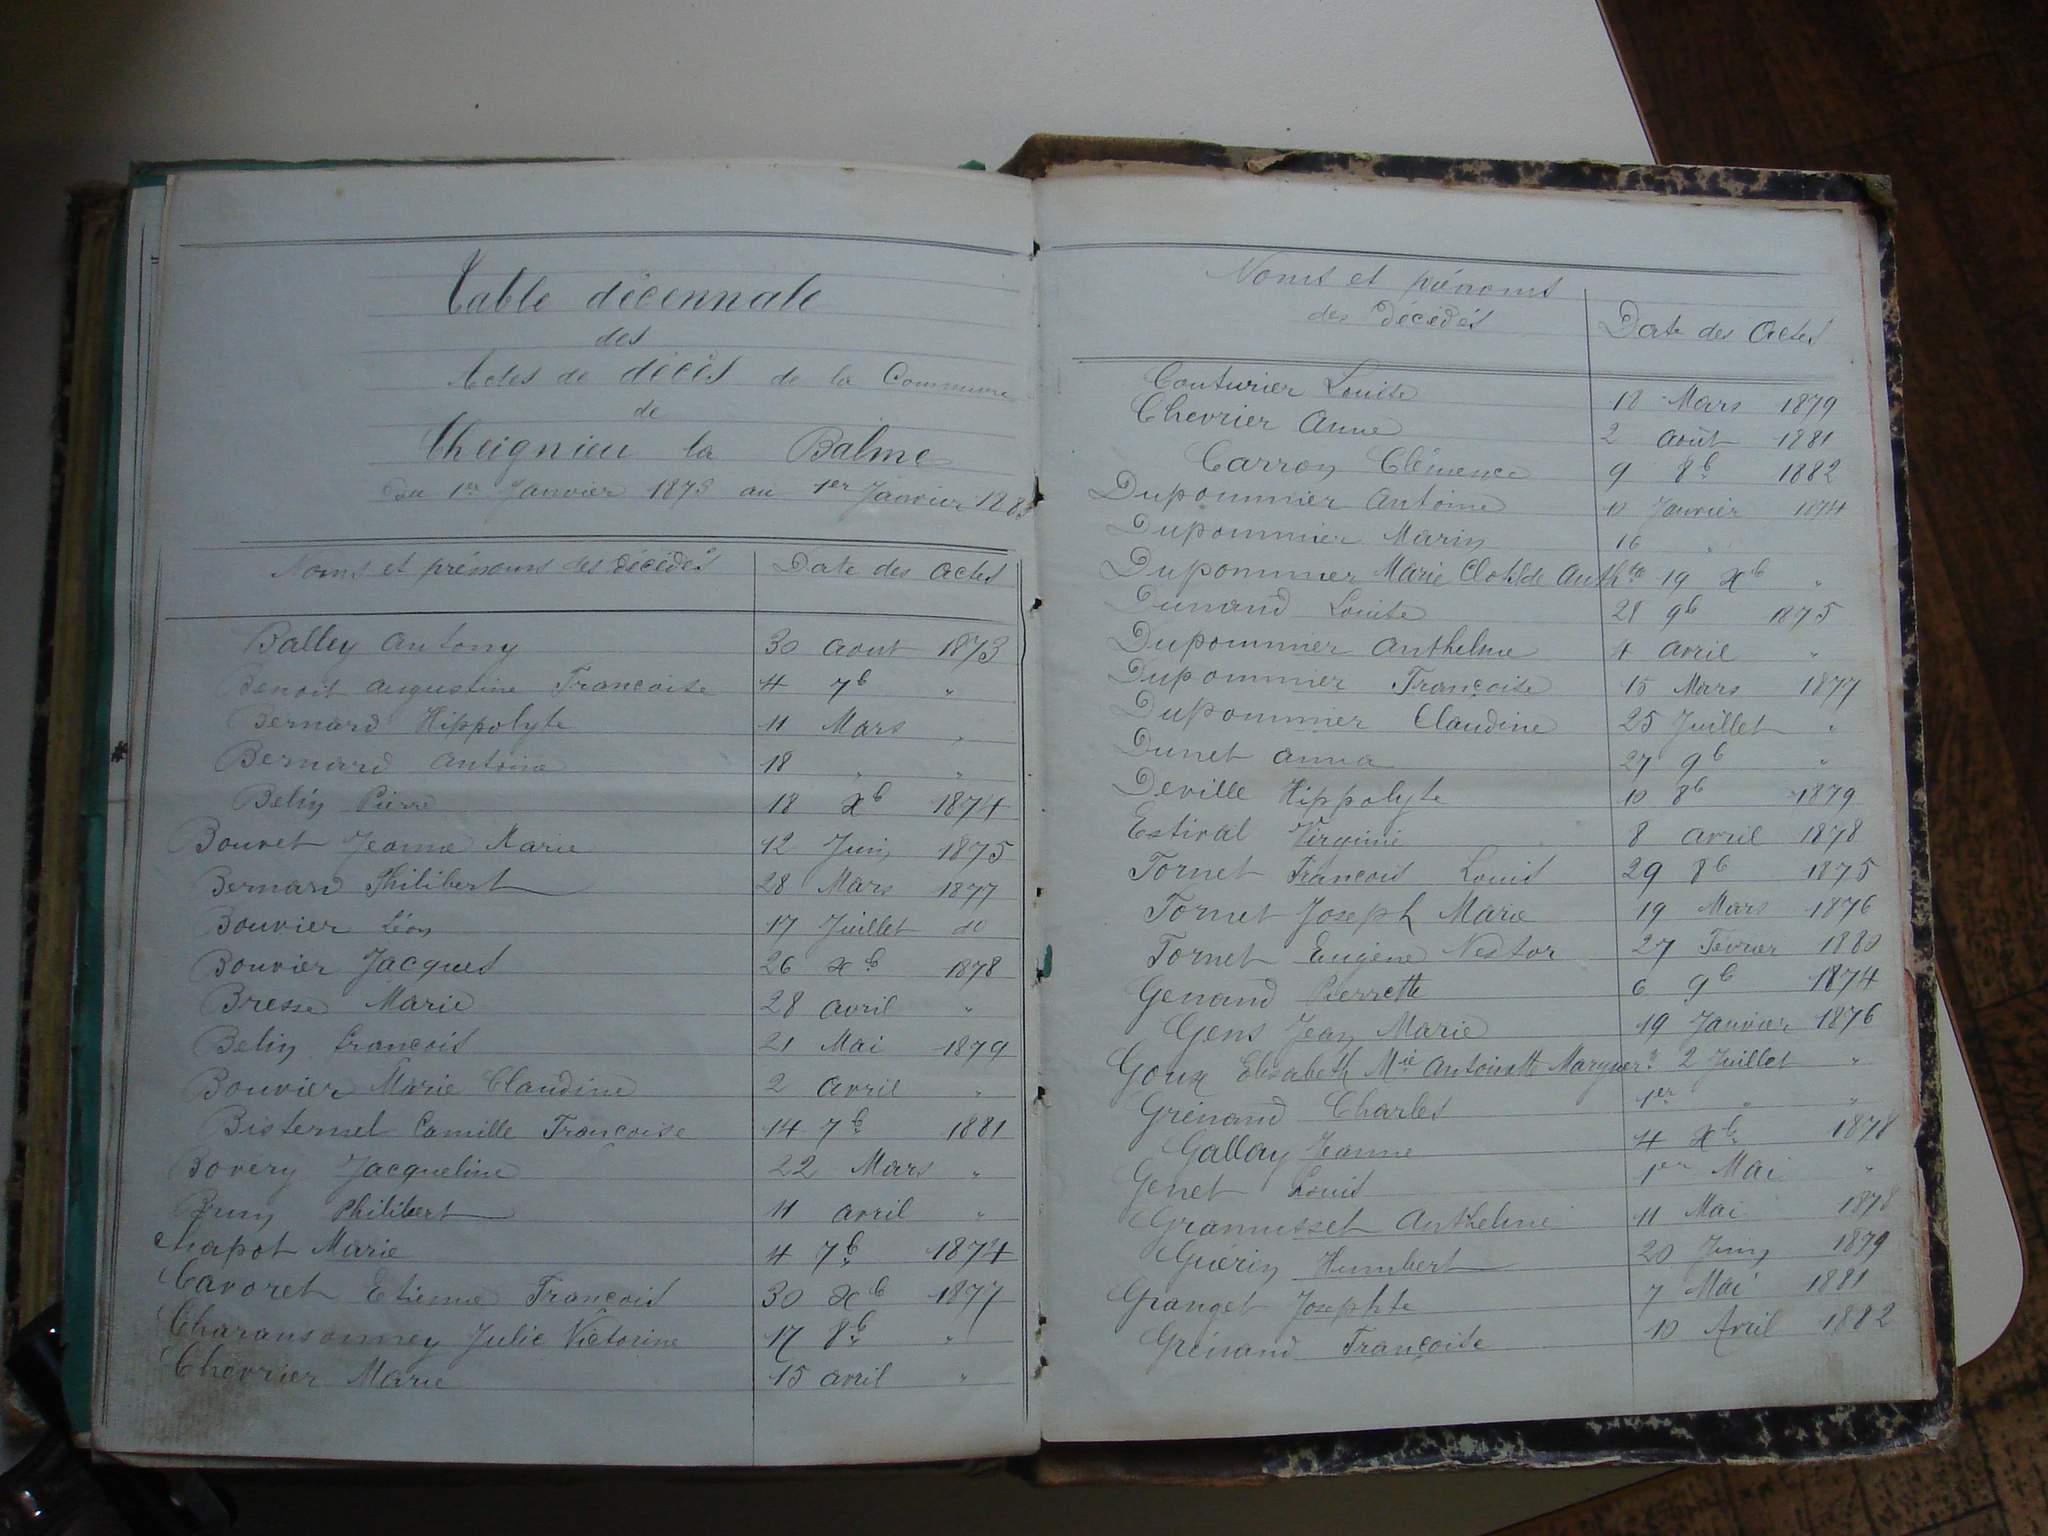 Table décennale
des
Actes de décès de la Commune
de
Cheignieu la Balme
du 1er Janvier 1873 au 1er Janvier 1883
Noms et prénoms des décédés Date des Actes
Balley Antony 30 Aout 1873
Benoit Augustine Françoise 4 7b "
Bernard Hippolyte 11 Mars "
Bernard Antoine 18 " "
Belin Pierre 18 Xb 1874
Bouvet Jeanne Marie 12 Juin 1875
Bernard Philibert 28 Mars 1877
Bouvier Léon 17 Juillet do
Bouvier Jacques 26 Xb 1878
Bresse Marie 28 Avril "
Belin François 21 Mai 1879
Bouvier Marie Claudine 2 Avril "
Bisternel Camille Françoise 14 7b 1881
Bovery Jacqueline 22 Mars "
Brun Philibert 11 Avril "
Chapot Marie 4 7b 1874
Cavoret Etienne François 30 Xb 1877
Charansonney Julie Victorine 17 8b "
Chevrier Marie 15 Avril "
Noms et prénoms
des décédés Date des Actes
Couturier Louise 18 Mars 1879
Chevrier Anne 2 Août 1881
Carron Clémence 9 8b 1882
Dupommier Antoine 10 Janvier 1874
Dupommier Marin 16 "
Dupommier Marie Clotilde Anthte 19 Xb "
Dunand Louise 21 9b 1875
Dupommier Anthelme 4 Avril "
Dupommier Françoise 15 Mars 1877
Dupommier Claudine 25 Juillet "
Dunet Anna 27 9b "
Deville Hippolyte 10 8b 1879
Estival Virginie 8 Avril 1878
Fornet François Louis 29 8b 1875
Fornet Joseph Marie 19 Mars 1876
Fornet Eugène Nestor 27 Fevrier 1880
Genand Pierrette 6 9b 1874
Gens Jean Marie 19 Janvier 1876
Goux Elisabeth Mie Antoinette 2 Juillet "
Grénand Charles 1er " "
Gallay Jeanne 4 Xb 1878
Genet Louis 1er Mai "
Gramusset Anthelme 11 Mai 1878
Guérin Humbert 20 Juin 1879
Granget Josephte 7 Mai 1881
Grénand Françoise 10 Avril 1882